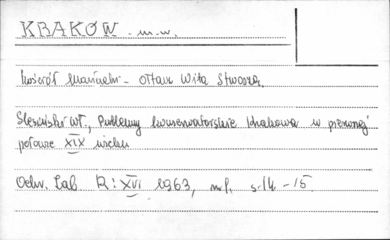 KRAKÓW - m.w.
Kościół Mariacki - Ołtarz Wita Stwosza.
Ślesiński Wł., Problemy konserwatorskie Krakowa w pierwszej
połowie XIX wieku
Ochr. Zab. R: XVI 1963, nr 1, s. 14-15.